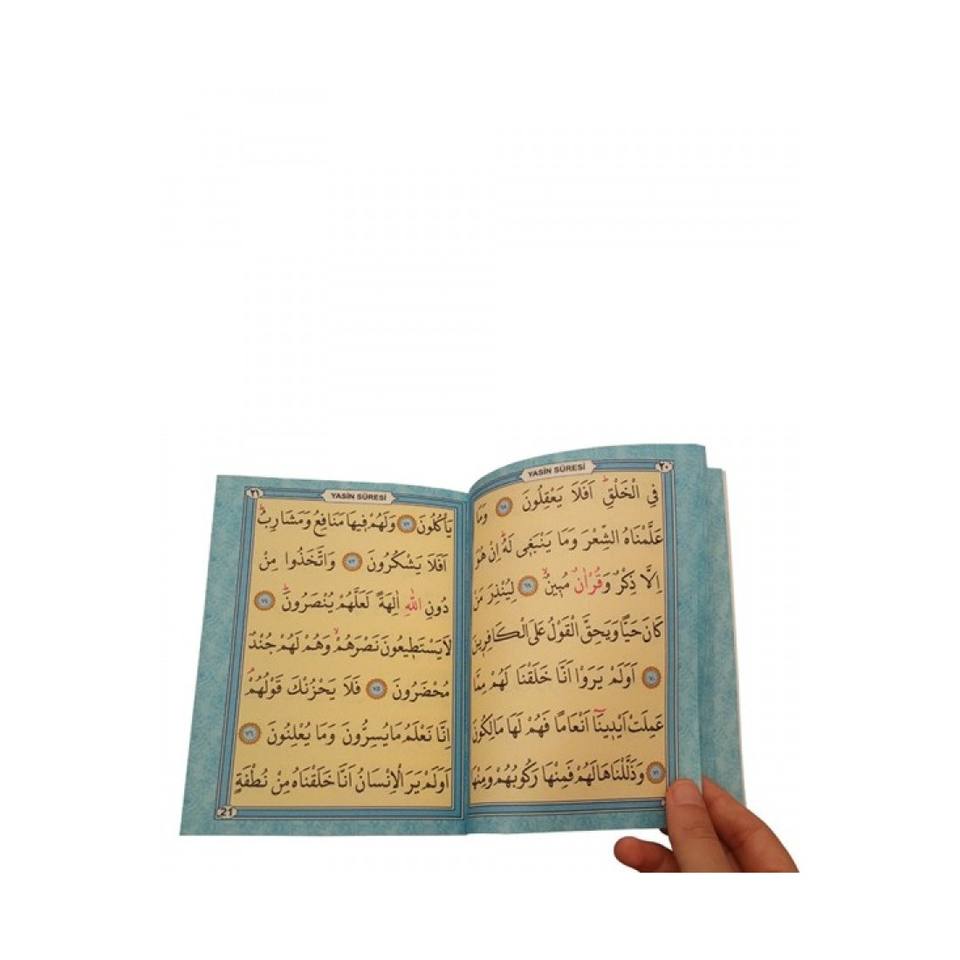 YASİN SÛRESİ
٢٠
فِي الْخَلْقِ اَفَلَا يَعْقِلُونَ ٦٨ وَمَا
عَلَّمْنَاهُ الشِّعْرَ وَمَا يَنْبَغ۪ى لَهُ اِنْ هُوَ
اِلَّا ذِكْرٌ وَقُرْاٰنٌ مُب۪ينٌ ٦٩ لِيُنْذِرَ مَنْ
كَانَ حَيًّا وَيَحِقَّ الْقَوْلُ عَلَى الْكَافِر۪ينَ
٧٠ اَوَلَمْ يَرَوْا اَنَّا خَلَقْنَا لَهُمْ مِمَّا
عَمِلَتْ اَيْد۪ينَٓا اَنْعَامًا فَهُمْ لَهَا مَالِكُونَ
٧١ وَذَلَّلْنَاهَا لَهُمْ فَمِنْهَا رَكُوبُهُمْ وَمِنْهَا
٢١
YASİN SÛRESİ
يَأْكُلُونَ ٧٢ وَلَهُمْ ف۪يهَا مَنَافِعُ وَمَشَارِبُ
اَفَلَا يَشْكُرُونَ ٧٣ وَاتَّخَذُوا مِنْ
دُونِ اللّٰهِ اٰلِهَةً لَعَلَّهُمْ يُنْصَرُونَ ٧٤
لَا يَسْتَط۪يعُونَ نَصْرَهُمْ وَهُمْ لَهُمْ جُنْدٌ
مُحْضَرُونَ ٧٥ فَلَا يَحْزُنْكَ قَوْلُهُمْ
اِنَّا نَعْلَمُ مَا يُسِرُّونَ وَمَا يُعْلِنُونَ ٧٦
اَوَلَمْ يَرَ الْاِنْسَانُ اَنَّا خَلَقْنَاهُ مِنْ نُطْفَةٍ
21